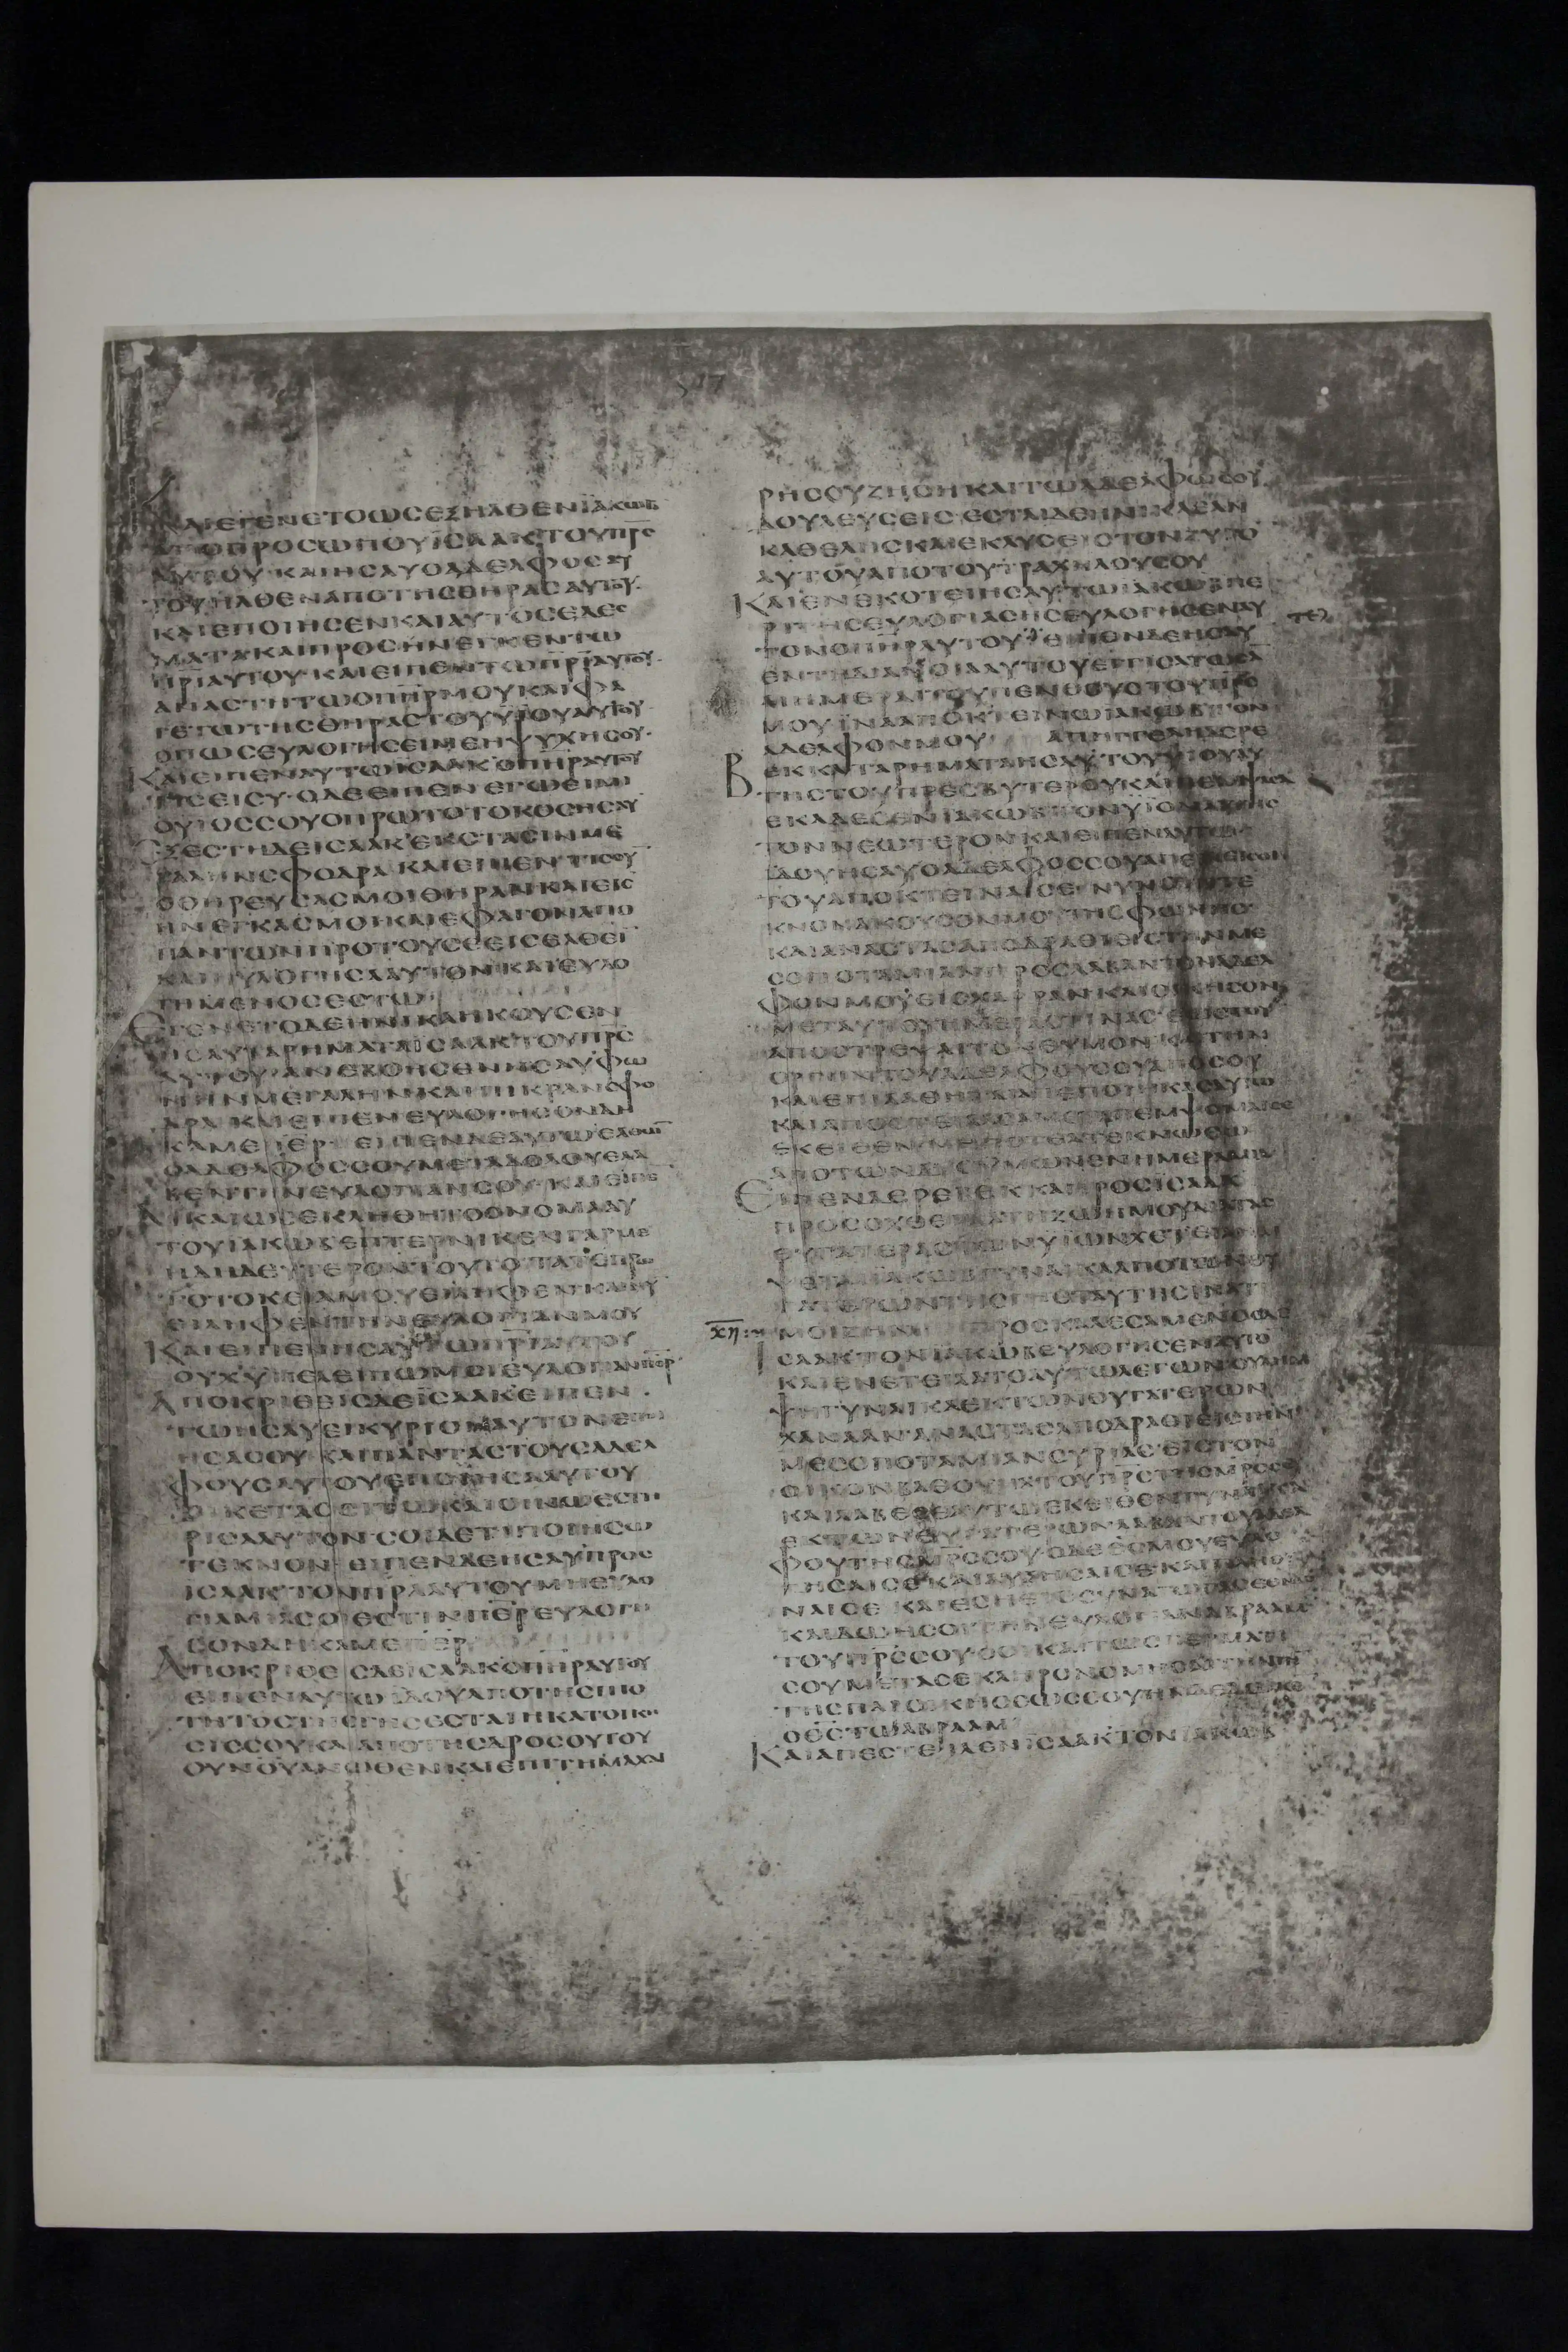 ΚΑΙΕΓΕΝΕΤΟΩΣΕΞΗΛΘΕΝΙΑΚΩΒ
ΑΠΟΠΡΟΣΩΠΟΥΙΣΑΑΚΤΟΥΠΡΣ
ΑΥΤΟΥ·ΚΑΙΗΣΑΥΟΑΔΕΛΦΟΣΑΥ
ΤΟΥΗΛΘΕΝΑΠΟΤΗΣΘΗΡΑΣΑΥΤΟΥ·
ΚΑΙΕΠΟΙΗΣΕΝΚΑΙΑΥΤΟΣΕΔΕΣ
ΜΑΤΑΚΑΙΠΡΟΣΗΝΕΓΚΕΝΤΩ
ΠΡΙΑΥΤΟΥ·ΚΑΙΕΙΠΕΝΤΩΠΡΙΑΥΤΟΥ·
ΑΝΑΣΤΗΤΩΟΠΗΡΜΟΥΚΑΙΦΑ
ΓΕΤΩΤΗΣΘΗΡΑΣΤΟΥΥΙΟΥΑΥΤΟΥ
ΟΠΩΣΕΥΛΟΓΗΣΕΙΜΕΗΨΥΧΗΣΟΥ·
ΚΑΙΕΙΠΕΝΑΥΤΩΙΣΑΑΚΟΠΗΡΑΥΤΟΥ
ΤΙΣΕΙΣΥ·ΟΔΕΕΙΠΕΝΕΓΩΕΙΜΙ
ΟΥΙΟΣΣΟΥΟΠΡΩΤΟΤΟΚΟΣΗΣΑΥ
ΕΞΕΣΤΗΔΕΙΣΑΑΚΕΚΣΤΑΣΙΝΜΕ
ΓΑΛΗΝΣΦΟΔΡΑ ΚΑΙΕΙΠΕΝΤΙΣΟΥ
ΟΘΗΡΕΥΣΑΣΜΟΙΘΗΡΑΝΚΑΙΕΙΣ
ΗΝΕΓΚΑΣΜΟΙΚΑΙΕΦΑΓΟΝΑΠΟ
ΠΑΝΤΩΝΠΡΟΤΟΥΣΕΕΙΣΕΛΘΕΙ
ΚΑΙΗΥΛΟΓΗΣΑΑΥΤΟΝΚΑΙΕΥΛΟ
ΓΗΜΕΝΟΣΕΣΤΩ
ΕΓΕΝΕΤΟΔΕΗΝΙΚΑΗΚΟΥΣΕΝ
ΗΣΑΥΤΑΡΗΜΑΤΑΙΣΑΑΚΤΟΥΠΡΣ
ΑΥΤΟΥΑΝΕΒΟΗΣΕΝΗΣΑΥΦΩ
ΝΗΝΜΕΓΑΛΗΝΚΑΙΠΙΚΡΑΝΣΦΟ
ΔΡΑ ΚΑΙΕΙΠΕΝΕΥΛΟΓΗΣΟΝΔΗ
ΚΑΜΕΠΕΡ ΕΙΠΕΝΔΕΑΥΤΩΕΛΘΩΝ
ΟΑΔΕΛΦΟΣΣΟΥΜΕΤΑΔΟΛΟΥΕΛΑ
ΒΕΝΤΗΝΕΥΛΟΓΙΑΝΣΟΥ·ΚΑΙΕΙΠΕ
ΔΙΚΑΙΩΣΕΚΛΗΘΗΤΟΟΝΟΜΑΑΥ
ΤΟΥΙΑΚΩΒΕΠΤΕΡΝΙΚΕΝΓΑΡΜΕ
ΗΔΗΔΕΥΤΕΡΟΝΤΟΥΤΟ ΤΑΤΕΠΡΩ
ΤΟΤΟΚΕΙΑΜΟΥΕΙΛΗΦΕΝΚΑΙΝΥ
ΕΙΛΗΦΕΝΤΗΝΕΥΛΟΓΙΑΝΜΟΥ
ΚΑΙΕΙΠΕΝΗΣΑΥΤΩΠΡΙΑΥΤΟΥ
ΟΥΧΥΠΕΛΕΙΠΩΜΟΙΕΥΛΟΓΙΑΝΠΕΡ
ΑΠΟΚΡΙΘΕΙΣΔΕΙΣΑΑΚΕΙΠΕΝ·
ΤΩΗΣΑΥΕΙΚΥΡΙΟΝΑΥΤΟΝΕΠΟΙ
ΗΣΑΣΟΥ ΚΑΙΠΑΝΤΑΣΤΟΥΣΑΔΕΛ
ΦΟΥΣΑΥΤΟΥΕΠΟΙΗΣΑΑΥΤΟΥ
ΟΙΚΕΤΑΣΣΙΤΩΚΑΙΟΙΝΩΕΣΤΗ
ΡΙΣΑΑΥΤΟΝ·ΣΟΙΔΕΤΙΠΟΙΗΣΩ
ΤΕΚΝΟΝ· ΕΙΠΕΝΔΕΗΣΑΥΠΡΟΣ
ΙΣΑΑΚΤΟΝΠΡΑΑΥΤΟΥΜΗΕΥΛΟ
ΓΙΑΜΙΑΣΟΙΕΣΤΙΝΠΕΡΕΥΛΟΓΗ
ΣΟΝΔΗΚΑΜΕΠΕΡ
ΑΠΟΚΡΙΘΕΙΣΔΕΙΣΑΑΚΟΠΗΡΑΥΤΟΥ
ΕΙΠΕΝΑΥΤΩΙΔΟΥΑΠΟΤΗΣΠΙΟ
ΤΗΤΟΣΤΗΣΓΗΣΕΣΤΑΙΗΚΑΤΟΙΚΗ
ΣΙΣΣΟΥΚΑΙΑΠΟΤΗΣΔΡΟΣΟΥΤΟΥ
ΟΥΝΟΥΑΝΩΘΕΝΚΑΙΕΠΙΤΗΜΑΧΑΙ
ΡΗΣΟΥΖΗΣΗΚΑΙΤΩΑΔΕΛΦΩΣΟΥ
ΔΟΥΛΕΥΣΕΙΣ·ΕΣΤΑΙΔΕΗΝΙΚΑΕΑΝ
ΚΑΘΕΛΗΣΚΑΙΕΚΛΥΣΕΙΣΤΟΝΖΥΓΟ
ΑΥΤΟΥΑΠΟΤΟΥΤΡΑΧΗΛΟΥΣΟΥ
ΚΑΙΕΝΕΚΟΤΕΙΗΣΑΥΤΩΙΑΚΩΒΠΕ
ΡΙΤΗΣΕΥΛΟΓΙΑΣΗΣΕΥΛΟΓΗΣΕΝΑΥ
ΤΟΝΟΠΗΡΑΥΤΟΥ ΕΙΠΕΝΔΕΗΣΑΥ
ΕΝΤΗΔΙΑΝΟΙΑΑΥΤΟΥΕΓΓΙΣΑΤΩΣΑ
ΑΙΗΜΕΡΑΙΤΟΥΠΕΝΘΟΥΣΤΟΥΠΡΣ
ΜΟΥ ΙΝΑΑΠΟΚΤΕΙΝΩΙΑΚΩΒΤΟΝ
ΑΔΕΛΦΟΝΜΟΥ ΑΠΗΓΓΕΛΗΔΕΡΕ
ΒΕΚΚΑΤΑΡΗΜΑΤΑΗΣΑΥΤΟΥΥΙΟΥΑΥ
ΤΗΣΤΟΥΠΡΕΣΒΥΤΕΡΟΥΚΑΙΠΕΜΨΑΣΑ
ΕΚΑΛΕΣΕΝΙΑΚΩΒΤΟΝΥΙΟΝΑΥΤΗΣ
ΤΟΝΝΕΩΤΕΡΟΝΚΑΙΕΙΠΕΝΑΥΤΩ·
ΙΔΟΥΗΣΑΥΟΑΔΕΛΦΟΣΣΟΥΑΠΕΙΛΕΙΣΟΙ
ΤΟΥΑΠΟΚΤΕΙΝΑΙΣΕ·ΝΥΝΟΥΝΤΕ
ΚΝΟΝΑΚΟΥΣΟΝΜΟΥΤΗΣΦΩΝΗΣ
ΚΑΙΑΝΑΣΤΑΣΑΠΟΔΡΑΘΙΕΙΣΤΗΝΜΕ
ΣΟΠΟΤΑΜΙΑΝΠΡΟΣΛΑΒΑΝΤΟΝΑΔΕΛ
ΦΟΝΜΟΥΕΙΣΧΑΡΡΑΝΚΑΙΟΙΚΗΣΟΝ
ΜΕΤΑΥΤΟΥΗΜΕΡΑΣΤΙΝΑΣ·ΕΩΣΤΟΥ
ΑΠΟΣΤΡΕΨΑΙΤΟΝΘΥΜΟΝΚΑΙΤΗΝ
ΟΡΓΗΝΤΟΥΑΔΕΛΦΟΥΣΟΥΑΠΟΣΟΥ
ΚΑΙΕΠΙΛΑΘΗΤΑΙΑΠΕΠΟΙΗΚΑΣΑΥΤΩ
ΚΑΙΑΠΟΣΤΕΙΛΑΣΑΜΕΤΑΠΕΜΨΟΜΑΙΣΕ
ΕΚΕΙΘΕΝ·ΜΗΠΟΤΕΑΤΕΚΝΩΘΩ
ΑΠΟΤΩΝΔΥΟΥΜΩΝΕΝΗΜΕΡΑΜΙΑ
ΕΙΠΕΝΔΕΡΕΒΕΚΚΑΠΡΟΣΙΣΑΑΚ
ΠΡΟΣΩΧΘΕΙΚΑΤΗΖΩΗΜΟΥΔΙΑΤΑΣ
ΘΥΓΑΤΕΡΑΣΤΩΝΥΙΩΝΧΕΤ·ΕΙΛΗΜ
ΨΕΤΑΙΙΑΚΩΒΓΥΝΑΙΚΑΑΠΟΤΩΝΘΥ
ΓΑΤΕΡΩΝΤΗΣΓΗΣΤΑΥΤΗΣΙΝΑΤΙ
ΜΟΙΖΗΝ ΠΡΟΣΚΑΛΕΣΑΜΕΝΟΣΔΕ
ΙΣΑΑΚΤΟΝΙΑΚΩΒΕΥΛΟΓΗΣΕΝΑΥΤΟ
ΚΑΙΕΝΕΤΕΙΛΑΤΟΑΥΤΩΛΕΓΩΝΟΥΛΗΜ
ΨΗΓΥΝΑΙΚΑΕΚΤΩΝΘΥΓΑΤΕΡΩΝ
ΧΑΝΑΑΝ·ΑΝΑΣΤΑΣΑΠΟΔΡΑΘΙΕΙΣΤΗΝ
ΜΕΣΟΠΟΤΑΜΙΑΝΣΥΡΙΑΣ·ΕΙΣΤΟΝ
ΟΙΚΟΝΒΑΘΟΥΗΛΤΟΥΠΡΣΤΗΣΜΡΣΣΟΥ
ΚΑΙΛΑΒΕΣΕΑΥΤΩΕΚΕΙΘΕΝΓΥΝΑΙΚΑ
ΕΚΤΩΝΘΥΓΑΤΕΡΩΝΛΑΒΑΝΤΟΥΑΔΕΛ
ΦΟΥΤΗΣΜΡΣΣΟΥ·ΟΔΕΘΣΜΟΥΕΥΛΟ
ΓΗΣΑΙΣΕΚΑΙΑΥΞΗΣΑΙΣΕΚΑΙΠΛΗΘΥ
ΝΑΙΣΕ ΚΑΙΕΣΗΕΙΣΣΥΝΑΓΩΓΑΣΕΘΝΩ
ΚΑΙΔΩΗΣΟΙΤΗΝΕΥΛΟΓΙΑΝΑΒΡΑΑΜ
ΤΟΥΠΡΣΣΟΥ·ΣΟΙΚΑΙΤΩΣΠΕΡΜΑΤΙ
ΣΟΥΜΕΤΑΣΕΚΛΗΡΟΝΟΜΗΣΑΙΤΗΝΓΗ
ΤΗΣΠΑΡΟΙΚΗΣΕΩΣΣΟΥΗΝΔΕΔΩΚΕ
ΟΘΣΤΩΑΒΡΑΑΜ
ΚΑΙΑΠΕΣΤΕΙΛΕΝΙΣΑΑΚΤΟΝΙΑΚΩΒ